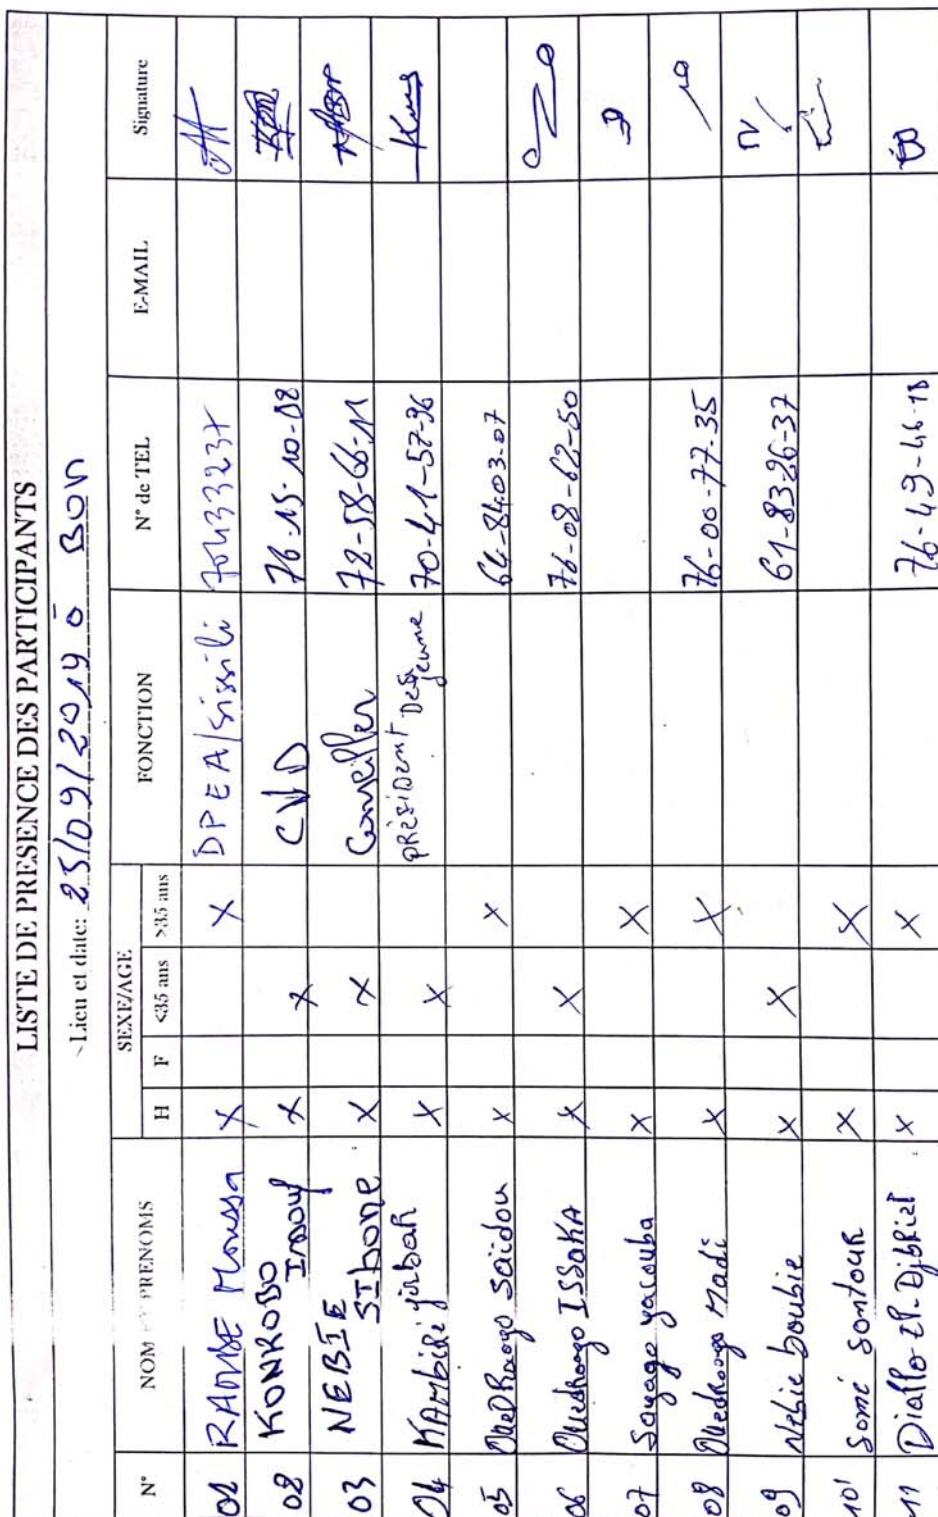 LISTE DE PRESENCE DES PARTICIPANTS
Lieu et date: 25/09/2019 à BON
N° NOM ET PRENOMS SEXE/AGE FONCTION N° de TEL E-MAIL Signature
H F <35 ans >35 ans
01 RAMDE Moussa X X DPEA/Sissili 70433237
02 KONKOBO Issouf X X CVD 76-15-10-08
03 NEBIE SIbone X X Conseiller 72-58-66-11
04 KAMbiRé X X PRésiDent Des jeune 70-41-57-96
05 OueDRaogo Saïdou X X 64-84-03-07
06 Ouedraogo ISSaKA X X 76-08-62-50
07 Sayago yacouba X X
08 Ouedraogo Madi X X 76-00-77-35
09 Nebie boubie X X 61-83-26-37
10 Somé Sontour X X
11 Diallo El-DjbRiel X X 76-49-46-18